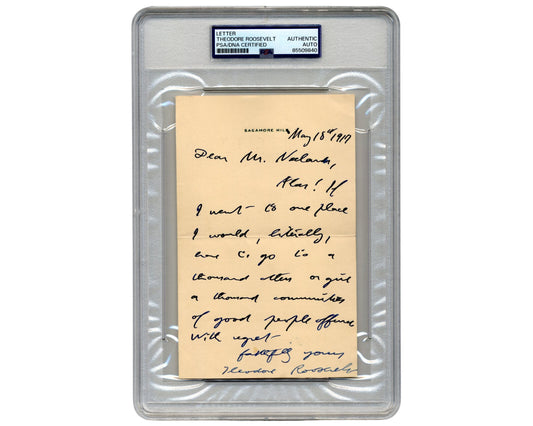 LETTER
THEODORE ROOSEVELT AUTHENTIC
PSA/DNA CERTIFIED AUTO
85509840
SAGAMORE HILL
May 18th 1917
Dear Mr.
Alas! If
I went to one place
I would, literally,
have to go to a
thousand others or give
a thousand communities
of good people offence
With regret
faithfully yours
Theodore Roosevelt